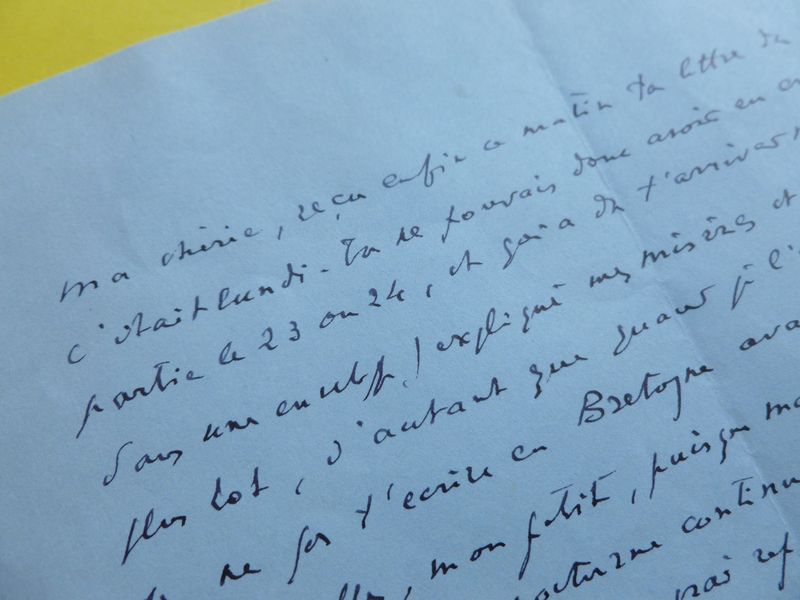 Ma chérie, reçu enfin ce matin ta lettre de
c'était lundi - Tu ne pouvais donc avoir eu
partie le 23 ou 24, et qui a du t'arriver
dans une envelopp.) expliqué mes misères et
plus tot, d'autant que quand j l'
ne pas t'écrire en Bretagne ava
mon petit, puisque ma
nocturne continu
vrai